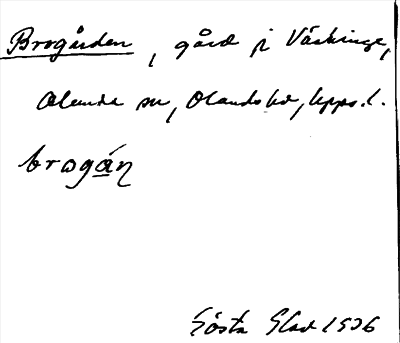 Brogården, gård på Väskinge,
Alunda sn, Olands hd, Upps. l.
brogán
Gösta Glad 1926